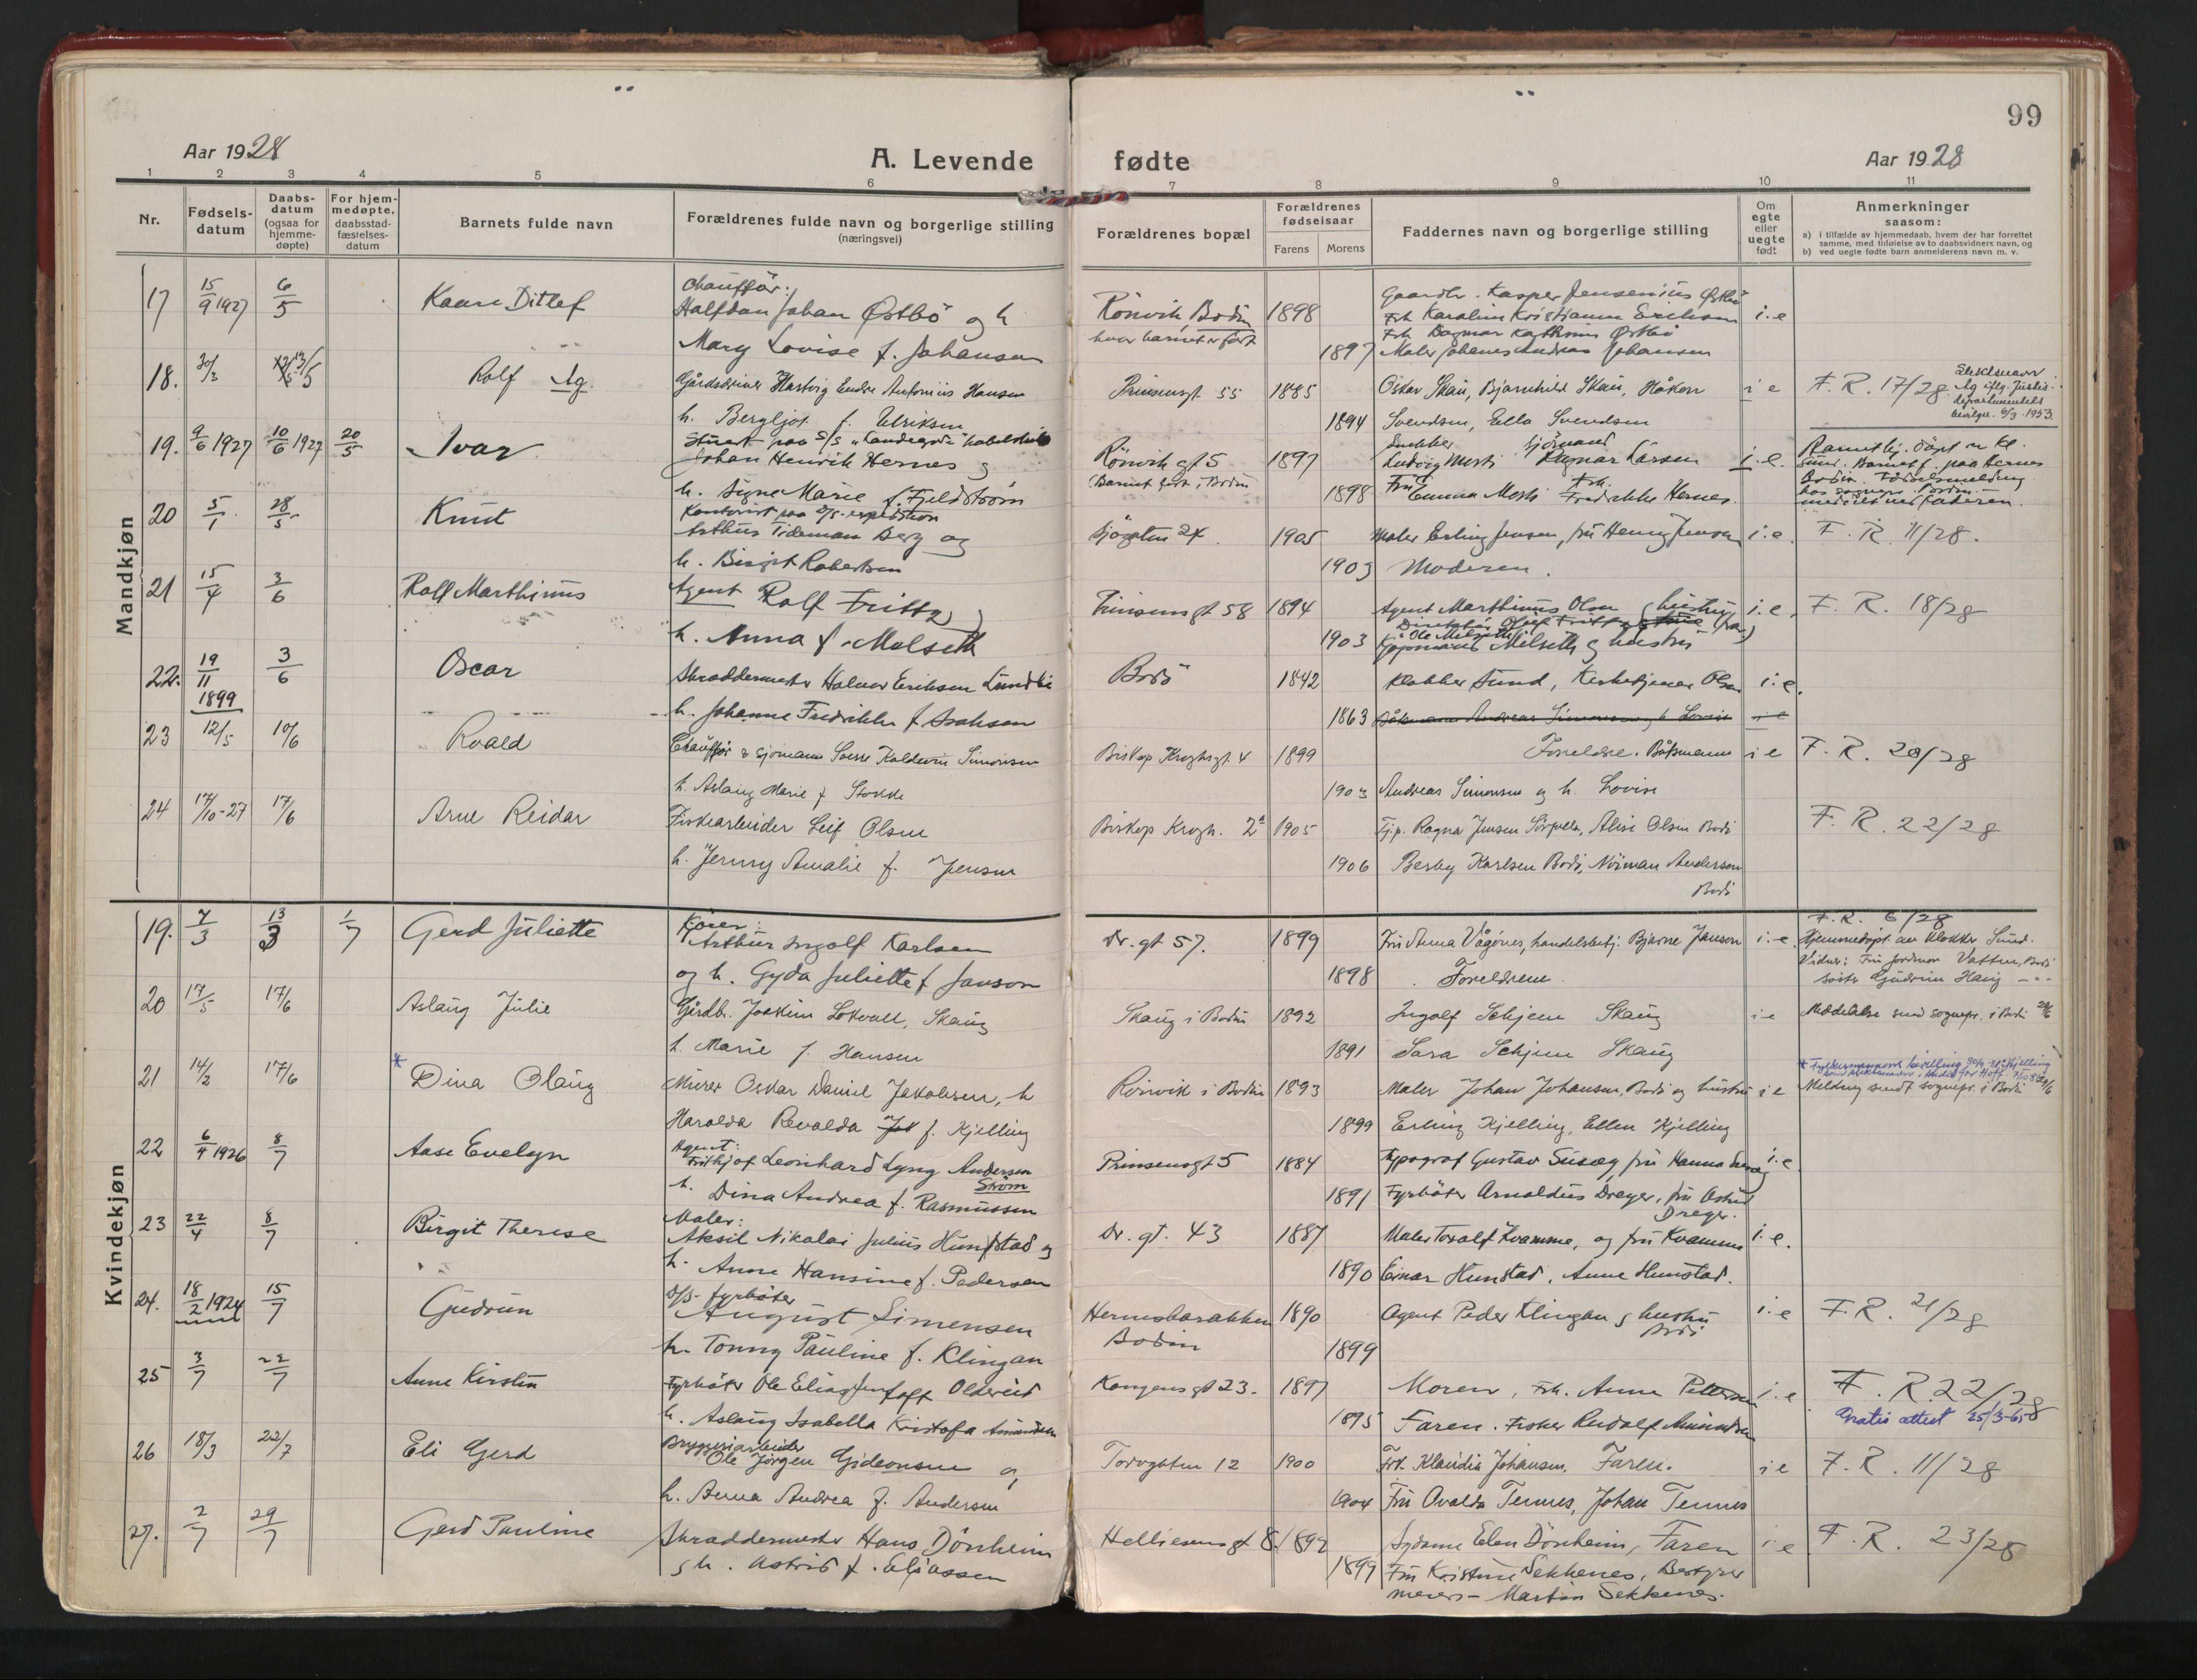 99
Aar 1928
A. Levende
fødte
Aar 1928
1 2 3 4 5 6 7 8 9 10 11
Nr.
Fødsels-
datum
Daabs-
datum
(ogsaa for
hjemme-
døpte)
For hjem-
medøpte,
daabsstad-
fæstelses-
datum
Barnets fulde navn
Forældrenes fulde navn og borgerlige stilling
(næringsvei)
Forældrenes bopæl
Forældrenes
fødselsaar
Farens Morens
Faddernes navn og borgerlige stilling
Om
egte
eller
uegte
født
Anmerkninger
saasom:
a) i tilfælde av hjemmedaab, hvem der har forrettet
samme, med tilføielse av to daabsvidners navn, og
b) ved uegte fødte barn anmelderens navn m. v.
Mandkjøn
17 15/9 1927 6/5 Kaare Ditlef
Chauffør:
Halfdan Johan Østbö og h
Mary Lovise f. Johansen
Rönvik Bodin
hvor barnet er født
1898
1897
Gaardbr. Kasper Jensenius Østbö
Frk Karoline Kristianne Eriksen
Frk Dagmar Kathrine Østbö
Maler Johanes Andreas Johansen
i.e
18. 30/3 13/5 Rolf Ag.
Gårdsdriver Hartvig Endre Antonius Hansen
h. Bergljot f. Ulriksen
Prinsensgt 55 1885
1894
Oskar Skau, Bjarnhild Skau, Håkon
Svendsen, Ella Svendsen
i e
F. R. 17/28
Slektsnavn
Ag iflg. Justis-
departementets
bevilgn. 6/3-1953
19. 9/6 1927 10/6 1927 20/5 Ivar
Stuert paa S/S "Landegode"
Johan Henrik Hernes og
h. Signe Marie f. Fjeldstrøm
Rönvik gt 5
Barnet født i Bodin
1897
1898
Snekker Sjømand
Ludvig Mosti Ragnar Larsen
Fru Emma Mosti Frk. Fredrikke Hernes.
i.e.
20 5/1 28/5 Knut
Kontorist paa D/S-expedition
Arthur Tideman Berg og
h. Birgit Robertsen
Sjøgaten 24. 1905
1903
Maler Erling Jensen, fru Henny Jensen
Moderen.
i.e.
F. R. 11/28.
21 15/4 3/6 Rolf Marthinus
Agent Rolf Frittz
h. Anna f. Melseth
Prinsensgt 58 1894
1903
Agent Marthinus Olsen
Melseth og hustru
i.e.
F. R. 18/28
22. 19/11 1899 3/6 Oscar
Skræddermester Halvor Eriksen Lundli
h. Johanne Fredrikke f. Isaksen
Bodö 1842
1863
Klokker Sund, Kirketjener Olsen
Båtsmann Andreas Simonsen og h Lovise
i.e.
i e
23 12/5 10/6 Roald
Chauffør & sjømann Sverre Koldevin Simonsen
h. Aslaug Marie f Stokke
Biskop Kroghsgt. 4 1899
1903
Foreldre. Båtsmann
Andreas Simonsen og h. Lovise
i e
F. R. 20/28
24 17/10-27 17/6 Arne Reidar
Fiskearbeider Leif Olsen
h. Jenny Amalie f. Jensen
Biskop Krogh. 2a 1905
1906
Tjp. Ragna Jensen Sørfjella, Alise Olsen Bodö
Berby Karlsen Bodö, Norman Anderson
Bodö
F. R. 22/28
Kvindekjøn
19. 7/3 13/3 1/7 Gerd Juliette
Kjører:
Arthur Ingolf Karlsen
og h. Gyda Juliette f Janson
Dr. gt 57. 1899
1898
Fru Anna Vågönes, handelsbetj. Bjarne Janson
Foreldrene.
i.e.
F. R. 6/28
Hjemmedöpt av Klokker Sund.
Vidner: Fru Jordmor Vatten, Bodö
søster Gudrun Haug -"-
20 17/5 17/6 Aslaug Julie
Gårdbr. Joakim Løkvall, Skaug
h. Marie f. Hansen
Skaug i Bodin 1892
1891
Ingolf Schjem Skaug
Sara Schjem Skaug
i e
Meddelelse send sognepr. i Bodin 20/6
21 14/2 17/6 * Dina Olaug
Murer Oskar Daniel Jakobsen, h
Haralda Revalda f. Kjelling
Rönvik i Bodin 1893
1899
Maler Johan Johansen, Bodö og hustru
Erling Kjelling, Ellen Kjelling
i e
Melding sendt sognepr. i Bodin 20/6
22 6/4 1926 8/7 Aase Evelyn
Agent:
Frithjof Leonhard Lyng Andersen
Strøm
h. Dina Andrea f. Rasmussen
Prinsensgt 5 1884
1891
Typograf Gustav Susæg, fru Hanna Susæg
Fyrböter Arnoldus Dreyer, fru Astrid
Dreyer.
i.e.
23 22/4 8/7 Birgit Therese
Maler:
Aksil Nikolai Julius Hunstad og
h. Anne Hansine f. Pedersen
Dr. gt. 43 1887
1890
Maler Toralf Kvamme, og fru Kvamme
Einar Hunstad, Anne Hunstad.
i.e.
24. 18/2 1924 15/7 Gudrun
D/S-fyrböter
August Simensen
h. Tonny Pauline f. Klingan
Hernesbarakken
Bodin
1890
1899
Agent Peder Klingan og hustru
Bodö
i.e
F. R. 21/28
25 3/7 22/7 Anne Kirstin
Fyrböter Ole Elias Oldereid
h. Aslaug Isabella Kristofa Amundsen
Kongensgt 23. 1897
1895
Moren, Frk. Anna Pettersen
Faren. Fisker Rudolf Amundsen
i.e
F. R. 22/28
Gratis attest 25/3-65
26 18/3 22/7 Eli Gerd
Bryggeriarbeider
Ole Jørgen Gideonsen og
h. Anna Andrea f. Andersen
Torvgaten 12 1900
1904
Frk. Klaudia Johansen, Faren.
Fru Ovalda Tennes, Johan Tennes
i e
F. R. 11/28
27. 2/7 29/7 Gerd Pauline
Skræddermester Hans Dönheim
og h. Astrid f. Eliassen
Helliesensgt 8. 1892
1899
Sydame Elen Dönheim, Faren
Fru Kristine Sekkenes, Bestyrer
meieri- Martin Sekkenes.
i e
F. R. 23/28